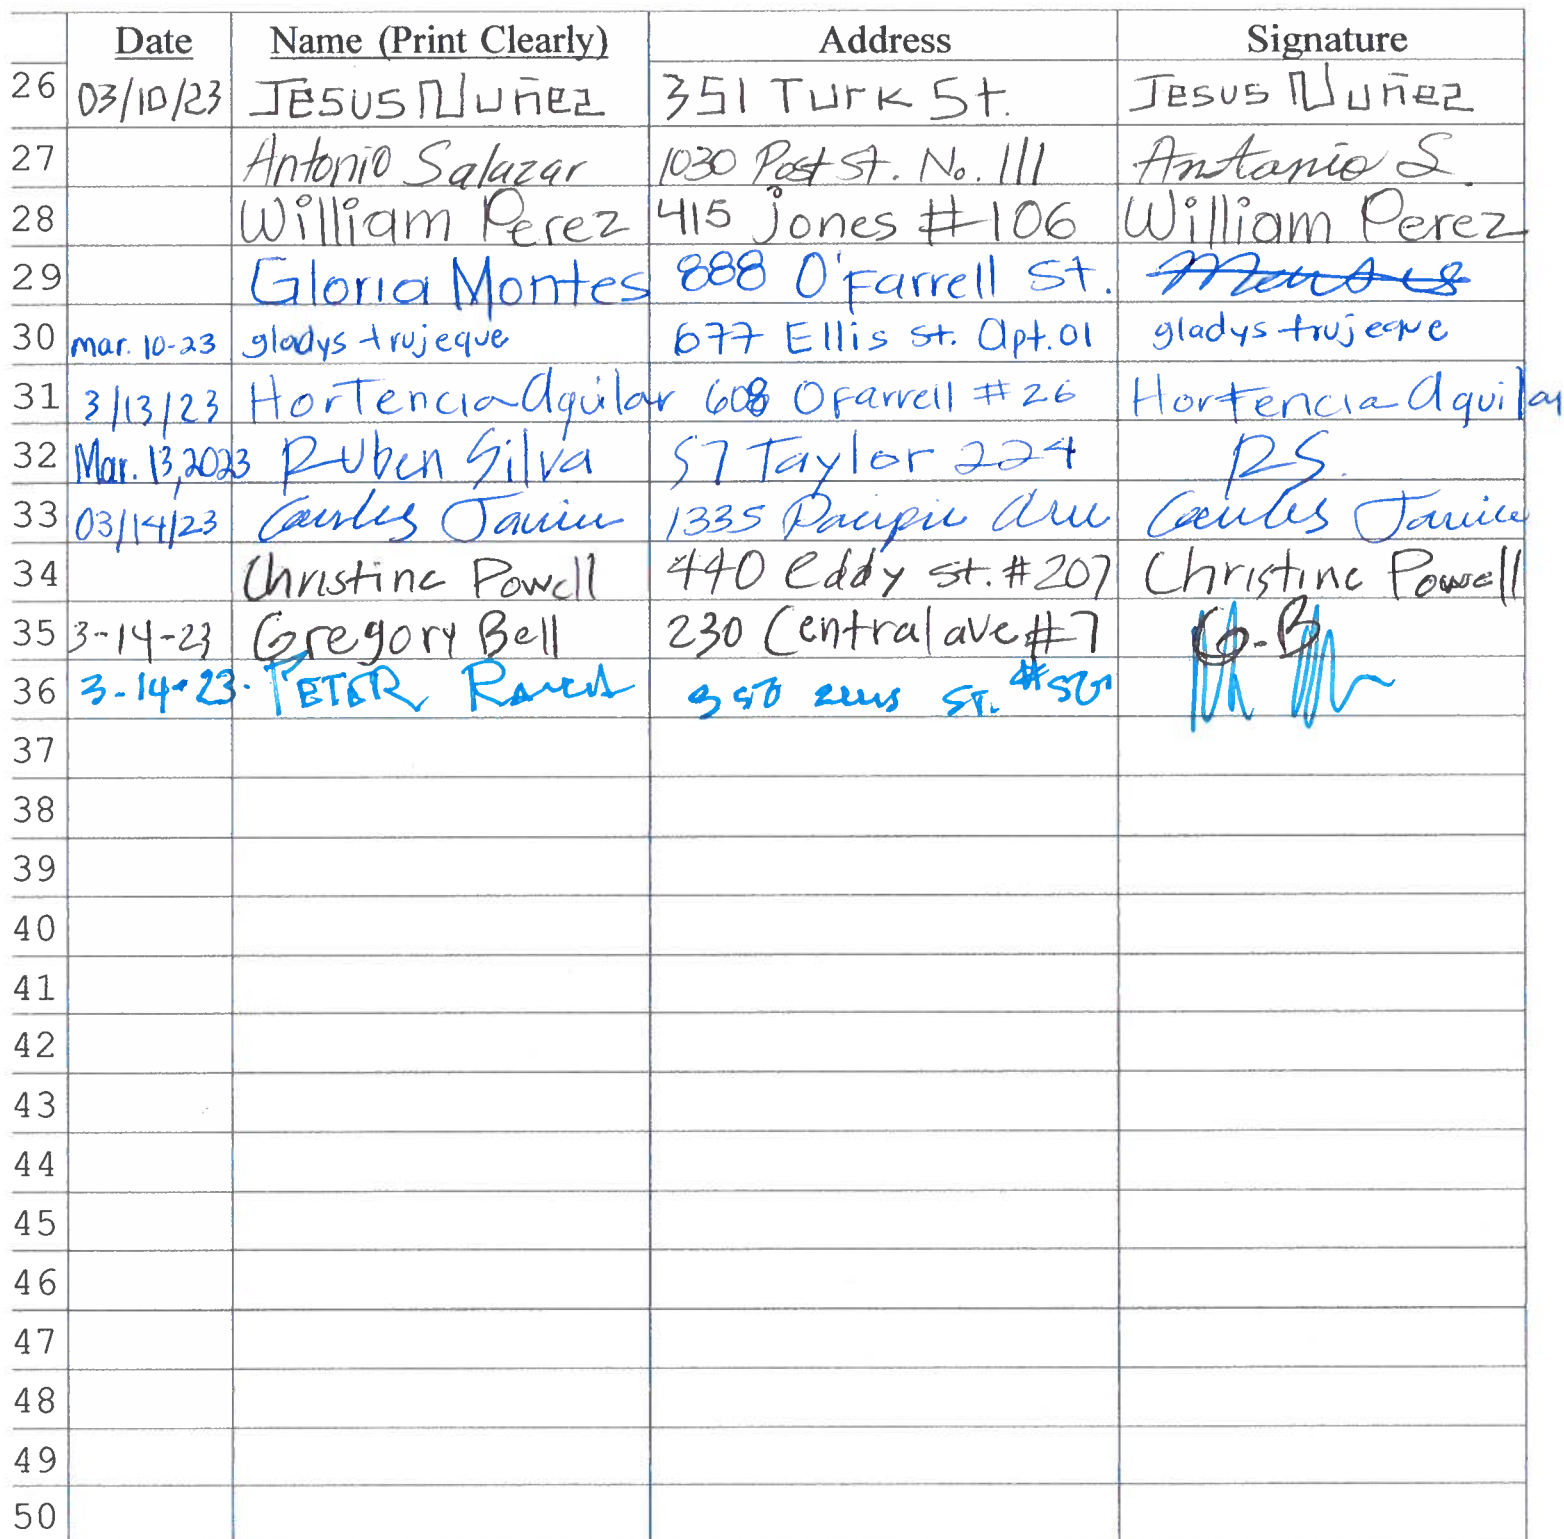 Date Name (Print Clearly) Address Signature
26 03/10/23 JESUS Nuñez 351 Turk St. JESUS Nuñez
27 Antonio Salazar 1030 Post St. No. 111 Antonio S.
28 William Perez 415 jones #106 William Perez
29 Gloria Montes 888 O'Farrell St. Montes
30 mar. 10-23 gladys trujeque 677 Ellis St. Apt. 01 gladys trujeque
31 3/13/23 HorTencia Aguilar 608 OFarrell #26 Hortencia Aguilar
32 Mar. 13, 2023 RUben Silva 57 Taylor 224 R S.
33 03/14/23 Carlos 1335 Pacific Ave Carlos
34 Christine Powell 440 eddy st. #207 Christine Powell
35 3-14-23 Gregory Bell 230 Central ave #7 G.B
36 3-14-23. PETER ST.
37
38
39
40
41
42
43
44
45
46
47
48
49
50